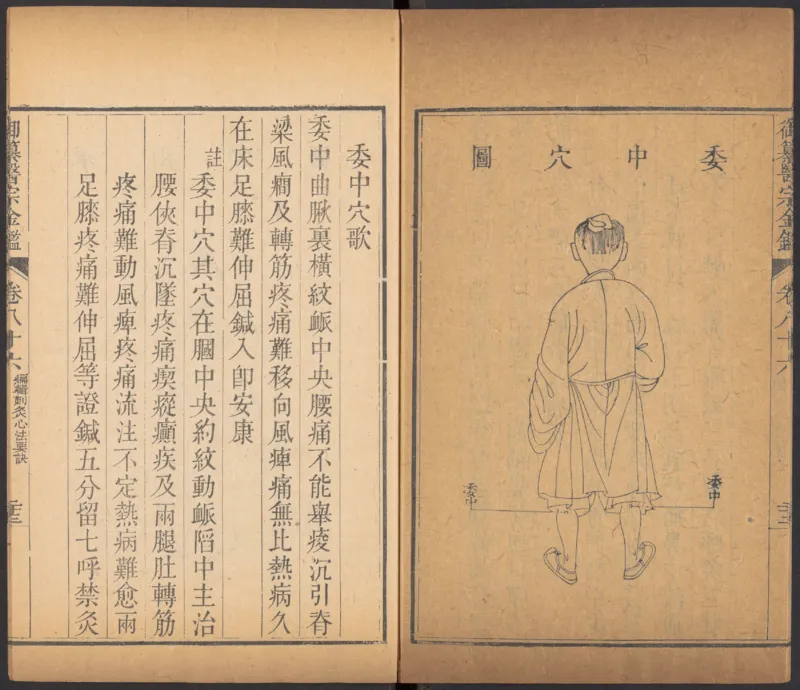 御纂醫宗金鑑
卷八十六
委中穴圖
委中
委中
委中穴歌
委中曲䐐裏橫紋衇中央腰痛不能舉痠沉引脊
梁風癎及轉筋疼痛難移向風痺痛無比熱病久
在床足膝難伸屈鍼入卽安康
註委中穴其穴在膕中央約紋動衇陷中主治
腰俠脊沉墜疼痛瘈瘲癲疾及兩腿肚轉筋
疼痛難動風痺疼痛流注不定熱病難愈兩
足膝疼痛難伸屈等證鍼五分留七呼禁灸
御纂醫宗金鑑
卷八十六
編輯刺灸心法要訣